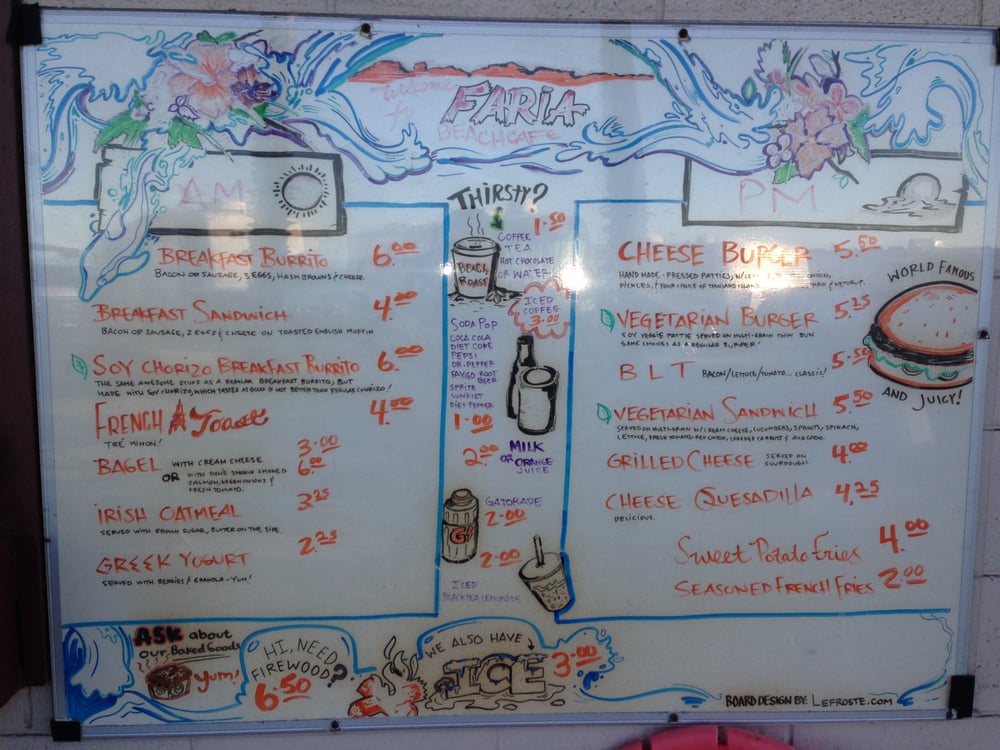 Welcome
To
FARIA
BEACH CAFE
AM
BREAKFAST BURRITO 6.00
BACON OR SAUSAGE, 3 EGGS, HASH BROWNS & CHEESE.
BREAKFAST SANDWICH 4.00
BACON OR SAUSAGE, 2 EGGS & CHEESE ON TOASTED ENGLISH MUFFIN
SOY CHORIZO BREAKFAST BURRITO 6.00
THE SAME AWESOME STUFF AS A REGULAR BREAKFAST BURRITO, BUT
MADE WITH SOY CHORIZO, WHICH TASTES AS GOOD IF NOT BETTER THAN REGULAR CHORIZO!
FRENCH Toast 4.50
TRÉ MINON!
BAGEL WITH CREAM CHEESE 3.00
OR WITH DON'S SMOKIN SMOKED 6.00
SALMON, GREEN ONIONS &
FRESH TOMATO.
IRISH OATMEAL 3.25
SERVED WITH BROWN SUGAR, BUTTER ON THE SIDE.
GREEK YOGURT 2.25
SERVED WITH BERRIES & GRANOLA - YUM!
THIRSTY?
1.50
COFFEE
TEA
HOT CHOCOLATE
OR WATER
BEACH
ROAST
ICED
COFFEE
3.00
SODA POP
COCA COLA
DIET COKE
PEPSI
DR. PEPPER
FAYGO ROOT
BEER
SPRITE
SUNKIST
DIET PEPPER
1.00
2.00 MILK
OR ORANGE
JUICE
GATORADE
2.00
G
2.00
ICED
BLACK TEA LEMONADE
PM
CHEESE BURGER 5.50
HAND MADE - PRESSED PATTIES, ONION,
PICKLES, & YOUR CHOICE OF THOUSAND ISLAND KETCHUP.
VEGETARIAN BURGER 5.25
SOY VEGGIE PATTIE SERVED ON MULTI-GRAIN THIN BUN
SAME CHOICES AS A REGULAR BURGER!
BLT BACON/LETTUCE/TOMATO... CLASSIC! 5.50
VEGETARIAN SANDWICH 5.50
SERVED ON MULTIGRAIN W/ CREAM CHEESE, CUCUMBERS, SPROUTS, SPINACH,
LETTUCE, FRESH TOMATO, RED ONION, SHREDED CARROTS & AVACADO.
GRILLED CHEESE SERVED ON 4.00
SOURDOUGH.
CHEESE QUESADILLA 4.25
DELICIOUS.
Sweet Potato Fries 4.00
SEASONED FRENCH FRIES 2.00
WORLD FAMOUS
AND JUICY!
ASK about
our Baked Goods
Yum!
HI, NEED
FIREWOOD?
6.50
WE ALSO HAVE
ICE 3.00
BOARD DESIGN BY: LEFROSTE.COM